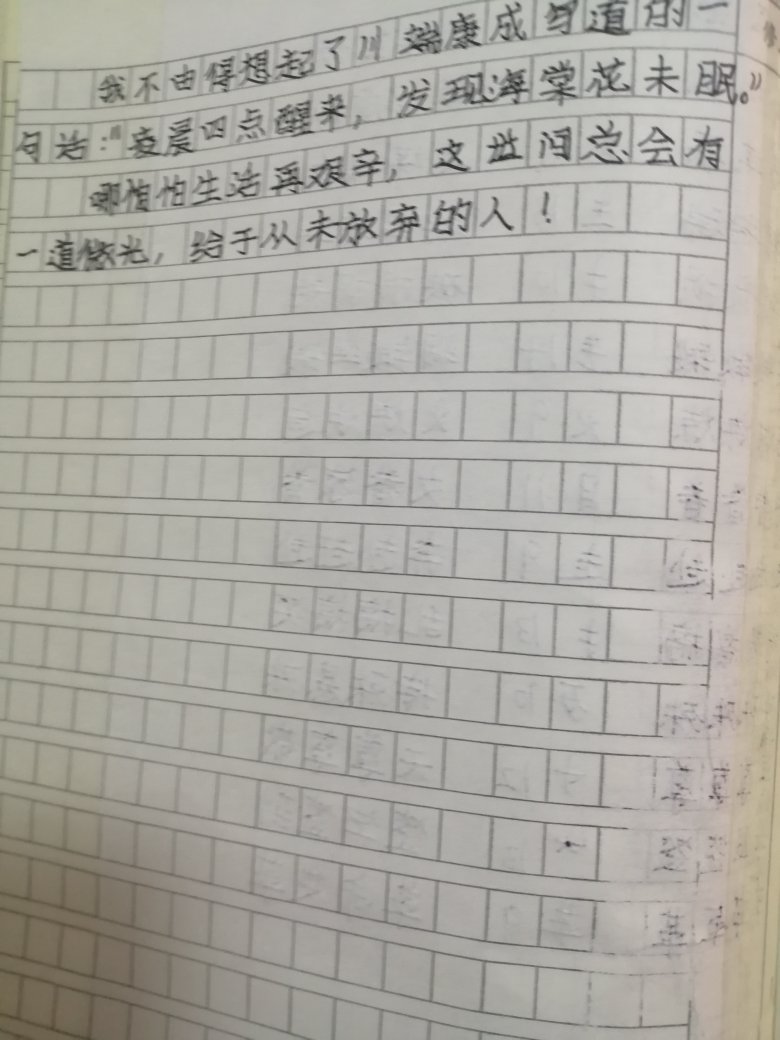 我不由得想起了川端康成写道的一
句话：“凌晨四点醒来，发现海棠花未眠。”
哪怕怕生活再艰辛，这世间总会有
一道微光，给于从未放弃的人！